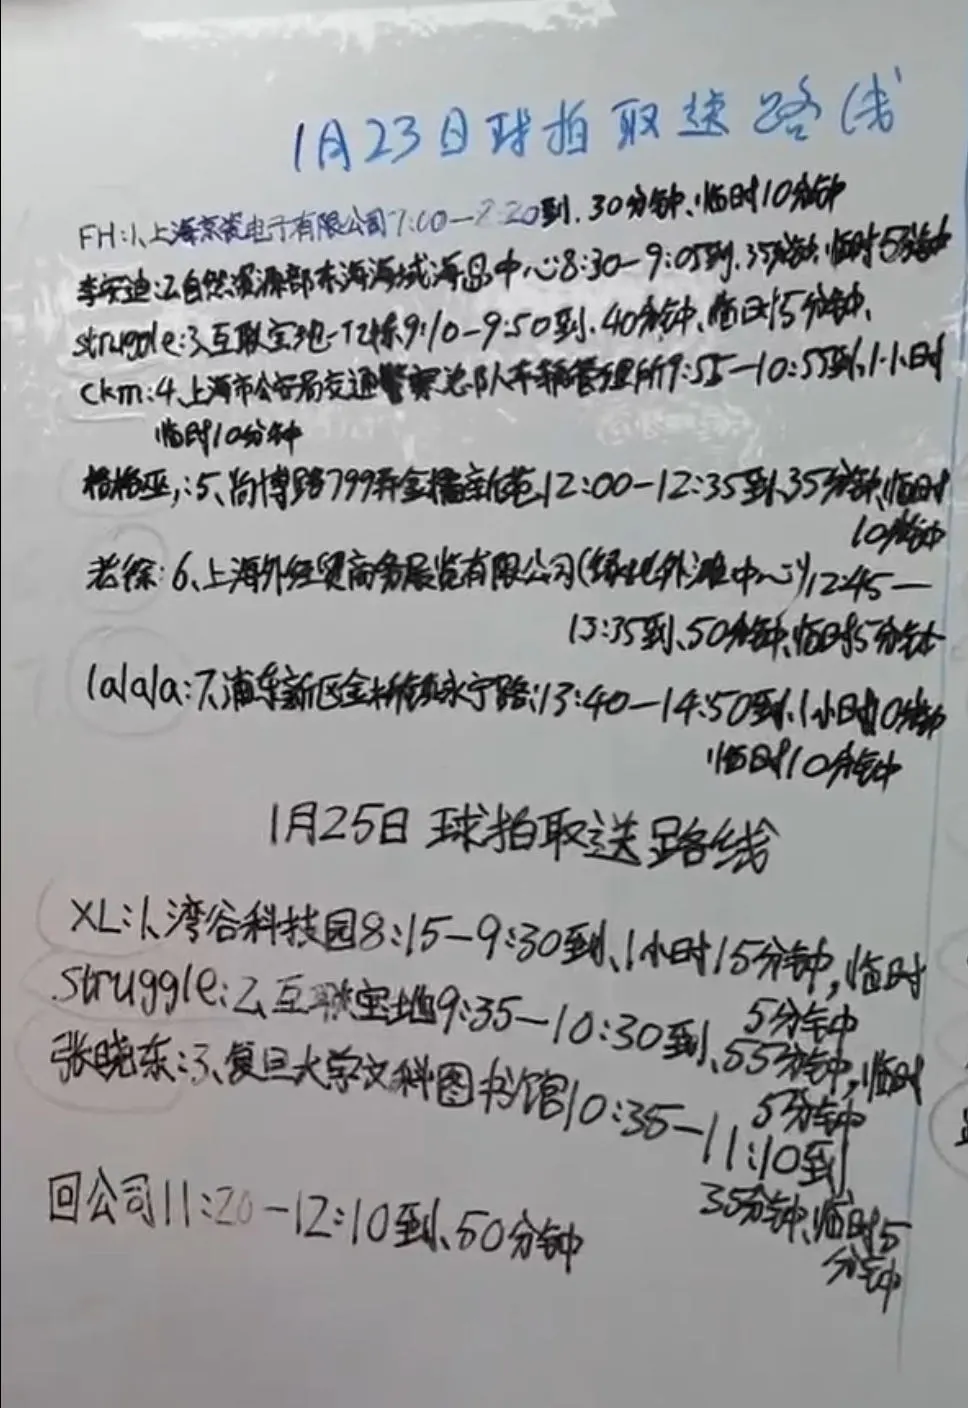 1月23日球拍取送路线
FH:1、上海京瓷电子有限公司7:00-8:20到、30分钟、临时10分钟
李安迪:2、自然资源部东海海域海岛中心8:30-9:05到、35分钟、临时5分钟
struggle:3、互联宝地-12栋9:10-9:50到、40分钟、临时5分钟、
ckm:4、上海市公安局交通警察总队车辆管理所9:55-10:55到、1小时
临时10分钟
格格巫,:5、尚博路799弄金播新苑12:00-12:35到、35分钟、临时
10分钟
老徐:6、上海外经贸商务展览有限公司(绿地外滩中心)12:45-
13:35到、50分钟、临时5分钟
lalala:7、浦东新区金桥镇永宁路:13:40-14:50到、1小时10分钟
临时10分钟
1月25日球拍取送路线
XL:1、湾谷科技园8:15-9:30到、1小时15分钟,临时
5分钟
struggle:2、互联宝地9:35-10:30到、55分钟,临时
5分钟
张晓东:3、复旦大学文科图书馆10:35-11:10到
35分钟、临时5
分钟
回公司11:20-12:10到、50分钟